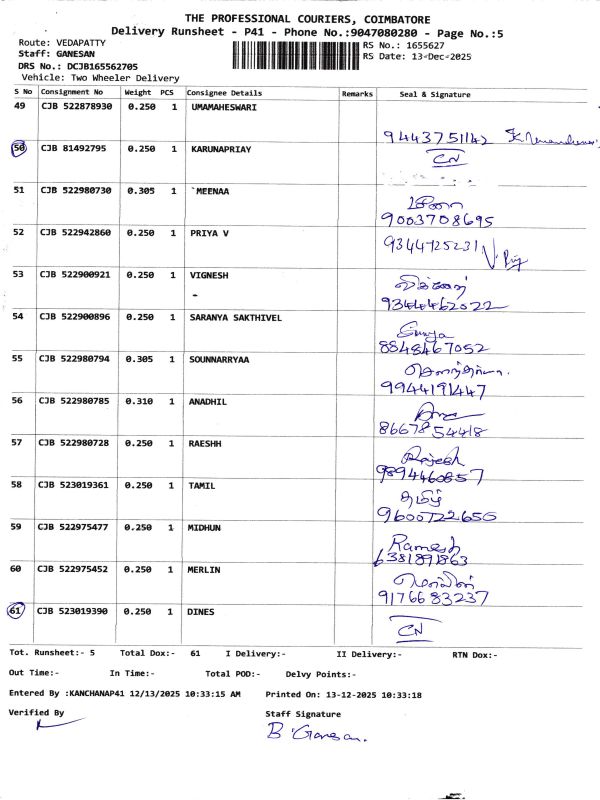 THE PROFESSIONAL COURIERS, COIMBATORE
Delivery Runsheet - P41 - Phone No.:9047080280 - Page No.:5
Route: VEDAPATTY
RS No.: 1655627
Staff: GANESAN
RS Date: 13-Dec-2025
DRS No.: DCJB165562705
Vehicle: Two Wheeler Delivery
S No Consignment No Weight PCS Consignee Details Remarks Seal & Signature
49 CJB 522878930 0.250 1 UMAMAHESWARI
9443751142
50 CJB 81492795 0.250 1 KARUNAPRIAY CN
51 CJB 522980730 0.305 1 `MEENAA
9003708695
52 CJB 522942860 0.250 1 PRIYA V 9344725231
53 CJB 522900921 0.250 1 VIGNESH
- 9344462022
54 CJB 522900896 0.250 1 SARANYA SAKTHIVEL
8848467052
55 CJB 522980794 0.305 1 SOUNNARRYAA
9944191447
56 CJB 522980785 0.310 1 ANADHIL
8667854418
57 CJB 522980728 0.250 1 RAESHH Rajesh
9894460857
58 CJB 523019361 0.250 1 TAMIL தமிழ்
9600722650
59 CJB 522975477 0.250 1 MIDHUN Ramesh
6381891863
60 CJB 522975452 0.250 1 MERLIN
9176683237
61 CJB 523019390 0.250 1 DINES CN
Tot. Runsheet:- 5 Total Dox:- 61 I Delivery:- II Delivery:- RTN Dox:-
Out Time:- In Time:- Total POD:- Delvy Points:-
Entered By :KANCHANAP41 12/13/2025 10:33:15 AM Printed On: 13-12-2025 10:33:18
Verified By Staff Signature
B Ganesan.